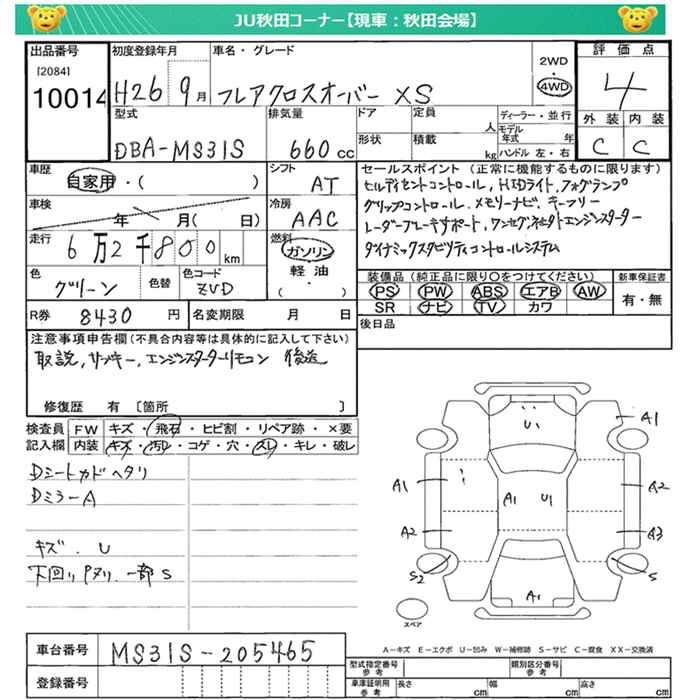 JU秋田コーナー【現車：秋田会場】
出品番号 初度登録年月 車名・グレード 評価点
[2084] 2WD
10014 H26 9月 フレアクロスオーバー XS 4WD 4
型式 排気量 ドア 定員 ディーラー・並行
人 モデル年式 年 外装 内装
DBA-MS31S 660cc 形状 積載 kg ハンドル 左・右 C C
車歴 シフト セールスポイント（正常に機能するものに限ります）
自家用・( ) AT ヒルディセントコントロール, HIDライト, フォグランプ
車検 冷房 グリップコントロール, メモリーナビ, キーフリー
年 月( 日) AAC レーダーブレーキサポート, ワンセグ, ネセクトエンジンスターター
走行 燃料 ダイナミックスタビリティコントロールシステム
6万2千800km ガソリン
軽油 装備品（純正品に限り〇をつけてください） 新車保証書
色 色替 色コード ・ PS PW ABS エアB AW 有・無
グリーン ZVD ( ) SR ナビ TV カワ
R券 8430円 名変期限 月 日 後日品
注意事項申告欄（不具合内容等は具体的に記入して下さい）
取説, サブキー, エンジンスターターリモコン 後送
修復歴 有 〔箇所 〕
検査員 FW キズ・飛石・ヒビ割・リペア跡・×要
記入欄 内装 キズ・汚レ・コゲ・穴・スレ・キレ・破レ
Dシートカドヘタリ
DミラーA
キズ. U
下回りPヌリ. 一部S
U A1
A1 A1 U1 A2
A2 A3
S2 S
A1
スペア
A－キズ E－エクボ U－凹み W－補修跡 S－サビ C－腐食 XX－交換済
車台番号 MS31S-205465
型式指定番号 参考 類別区分番号 参考
登録番号 車庫証明用 参考 長さ cm 幅 cm 高さ cm